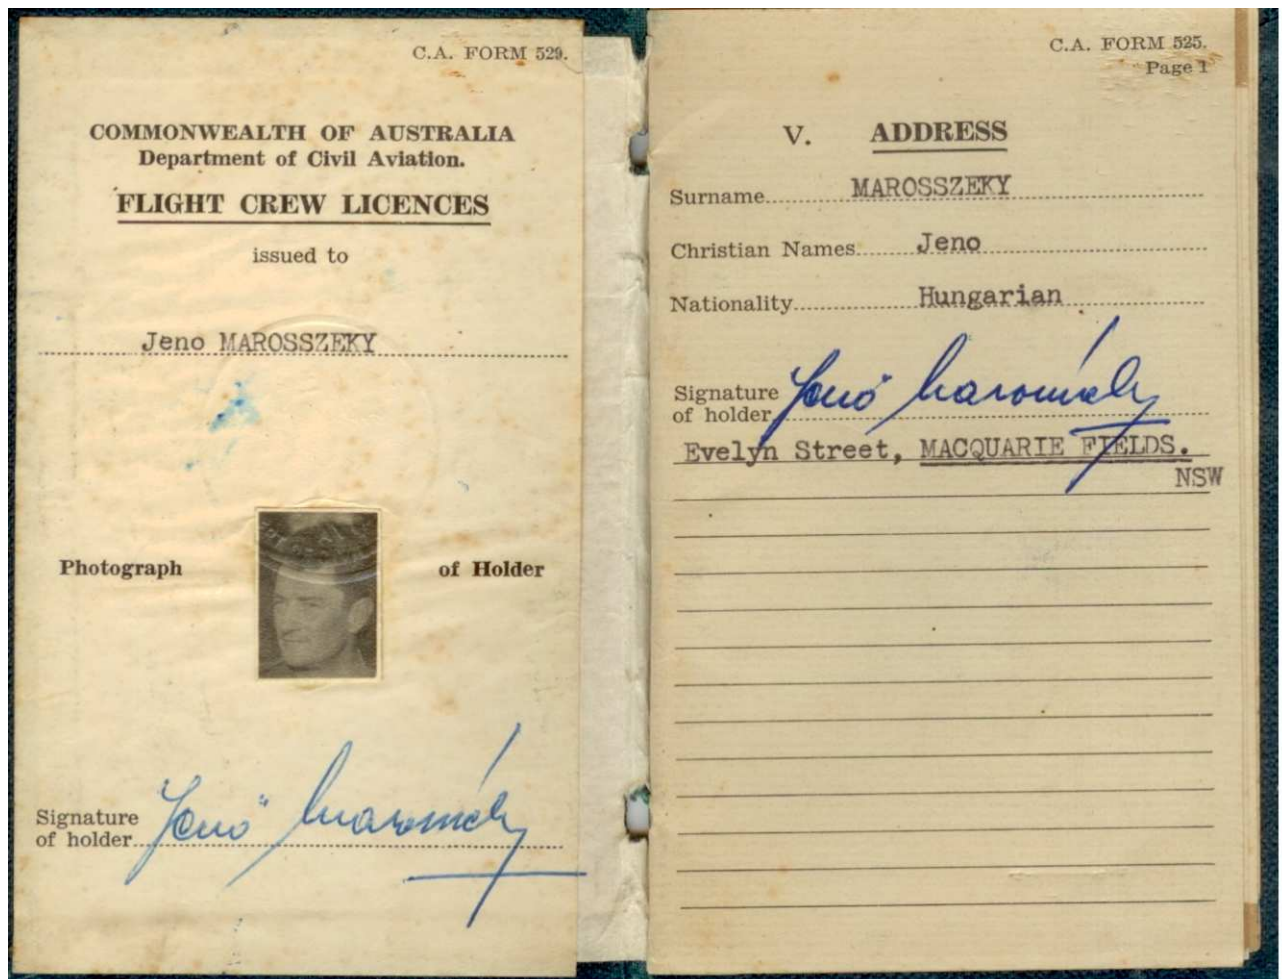 C.A. FORM 529.
COMMONWEALTH OF AUSTRALIA
Department of Civil Aviation.
FLIGHT CREW LICENCES
issued to
Jeno MAROSSZEKY
Photograph of Holder
Signature
of holder Jenő Marosszéky
C.A. FORM 525.
Page 1
V. ADDRESS
Surname MAROSSZEKY
Christian Names Jeno
Nationality Hungarian
Signature
of holder Jenő Marosszéky
Evelyn Street, MACQUARIE FIELDS.
NSW